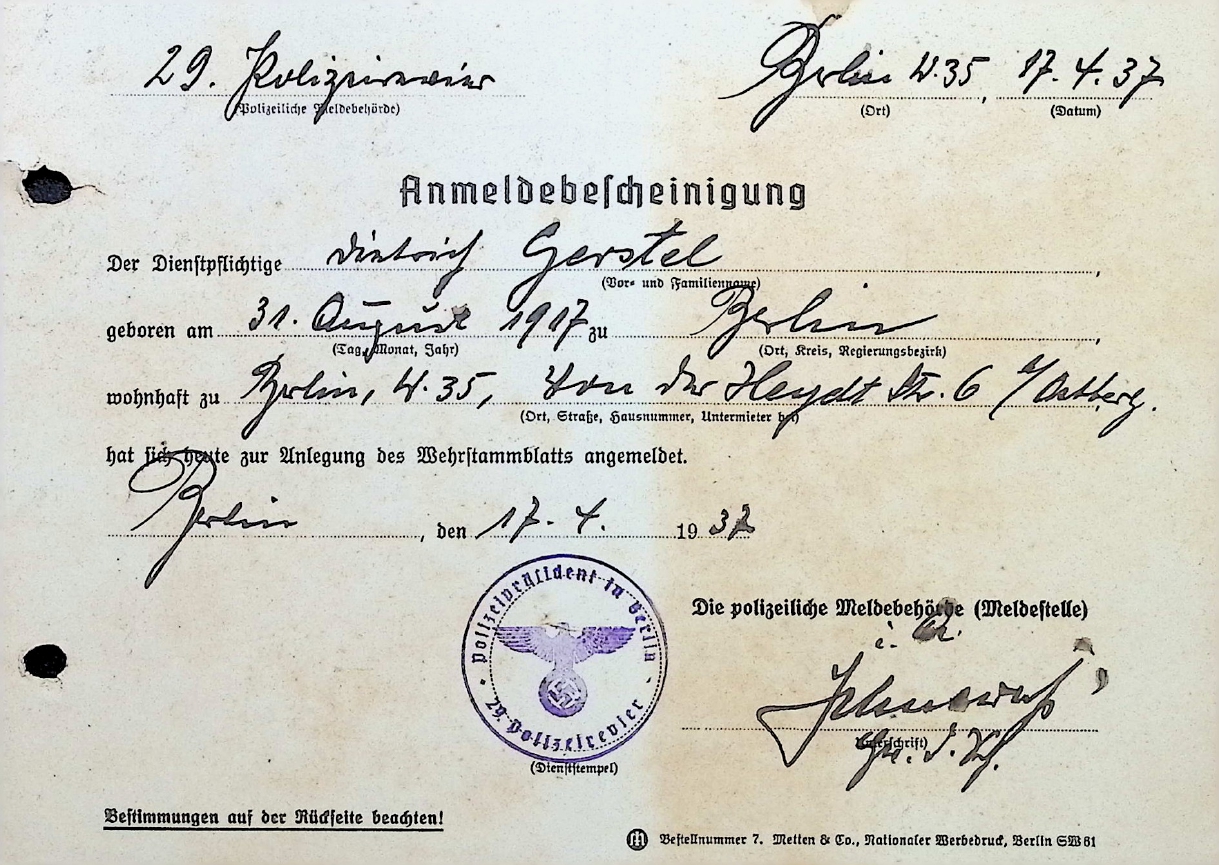 29. Polizeirevier
(Polizeiliche Meldebehörde)
Berlin W.35, 17.4.37
(Ort) (Datum)
Anmeldebescheinigung
Der Dienstpflichtige Dietrich Gerstel,
(Vor- und Familienname)
geboren am 31. August 1917 zu Berlin,
(Tag, Monat, Jahr) (Ort, Kreis, Regierungsbezirk)
wohnhaft zu Berlin, W.35, Von der Heydt Str. 6
(Ort, Straße, Hausnummer, Untermieter bei)
hat sich heute zur Anlegung des Wehrstammblatts angemeldet.
Berlin, den 17.4. 1937
Polizeipräsident in Berlin
29. Polizeirevier
(Dienststempel)
Die polizeiliche Meldebehörde (Meldestelle)
i. A.
(Unterschrift)
Bestimmungen auf der Rückseite beachten!
Bestellnummer 7. Metten & Co., Nationaler Werbedruck, Berlin SW 61